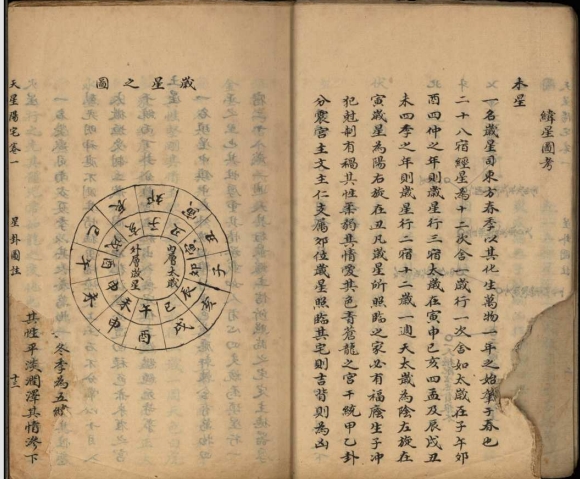 緯星圖考
木星
一名歲星司東方春季以其化生萬物一年之始肇于春也
二十八宿經星為十二次舍一歲行一次舍如太歲在子午卯
酉四仲之年則歲星行三宿太歲在寅申巳亥四孟及辰戌丑
未四季之年則歲星行二宿十二歲一週天太歲為陰左旋在
寅歲星為陽右旋在丑凡歲星所照臨之家必有福蔭生子冲
犯尅制有禍其性柔其情愛其色青蒼龍之宮干統甲乙卦
分震宮主文主仁支屬卯位歲星照臨其宅則吉背則為凶
歲星之圖
內層太歲
外層歲星
子丑寅卯辰巳午未申酉戌亥
子丑寅卯辰巳午未申酉戌亥
冬季為五
其性平淡潤澤其情滲下
天星陽宅卷一
星卦圖註